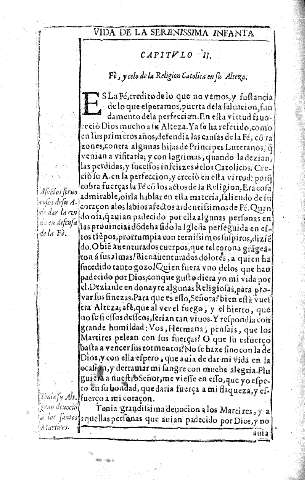 VIDA DE LA SERENISSIMA INFANTA
CAPITVLO II.
Fè, y celo de la Religion Catolica en su Alteza.
ES La Fè, credito de lo que no vemos, y sustancia
de lo que esperamos, puerta de la saluacion, fun-
damento de la perfeccion. En esta virtud fauo-
reciò Dios mucho a su Alteza. Ya se ha referido, como
en sus primeros años, defendia las causas de la Fè, cō ra
zones, contra algunas hijas de Principes Luteranos, q̃
venian a visitarla, y con lagrimas, quando la dezian,
las perdidas, y sucessos infelizes de los Catolicos. Cre-
ciò su A. en la perfeccion, y creciò en esta virtud: porq̃
cobra fuerças la Fè con los actos de la Religion. Era cosa
admirable, oirla hablar en esta materia, saliendo de su
coraçon a los labios afectos ardentissimos de Fè. Quan
do oìa, que auian padecido por ella algunas personas en
las prouincias dōde ha sido la Iglesia perseguida en es-
tos tiēpos, prorrumpia con ternissimos suspiros, diziē
do. O biē auenturados cuerpos, que tal corona grāgea-
ron a sus almas! Bienauenturados dolores, a quien ha
sucedido tanto gozo! Quien fuera vno de los que han
padecido por Dios, con que gusto diera yo mi vida por
el. Deziande en donayre algunas Religiosas, para pro-
uar sus finezas. Para que es esso, Señora? bien està vues-
tra Alteza; assi, que al ver el fuego, y el hierro, que
no se si essos desseos, serian tan viuos. Y respondia con
grande humildad: Vos, Hermana, pensais, que los
Martires pelean con sus fuerças? O que su esfuerço
basta a vencer sus tormentos? No se haze sino con la de
Dios, y con ella espero, que auia de dar mi vida en la
ocasion, y derramar mi sangre con mucho alegria. Plu
guiera a nuestro Señor, me viesse en esso, que yo espe-
ro en su bondad, que daria fuerça a mi flaqueza, y es-
fuerço a mi coraçon.
Tenia grandissima deuocion a los Martires, y a
aquellas personas que auian padecido por Dios, y no
auia
Afectos feruo
rosos de su A-
de dar la vi-
da en defensa
de la Fè.
Tenia su Al.
gran deuociō
a los santos
Martires.